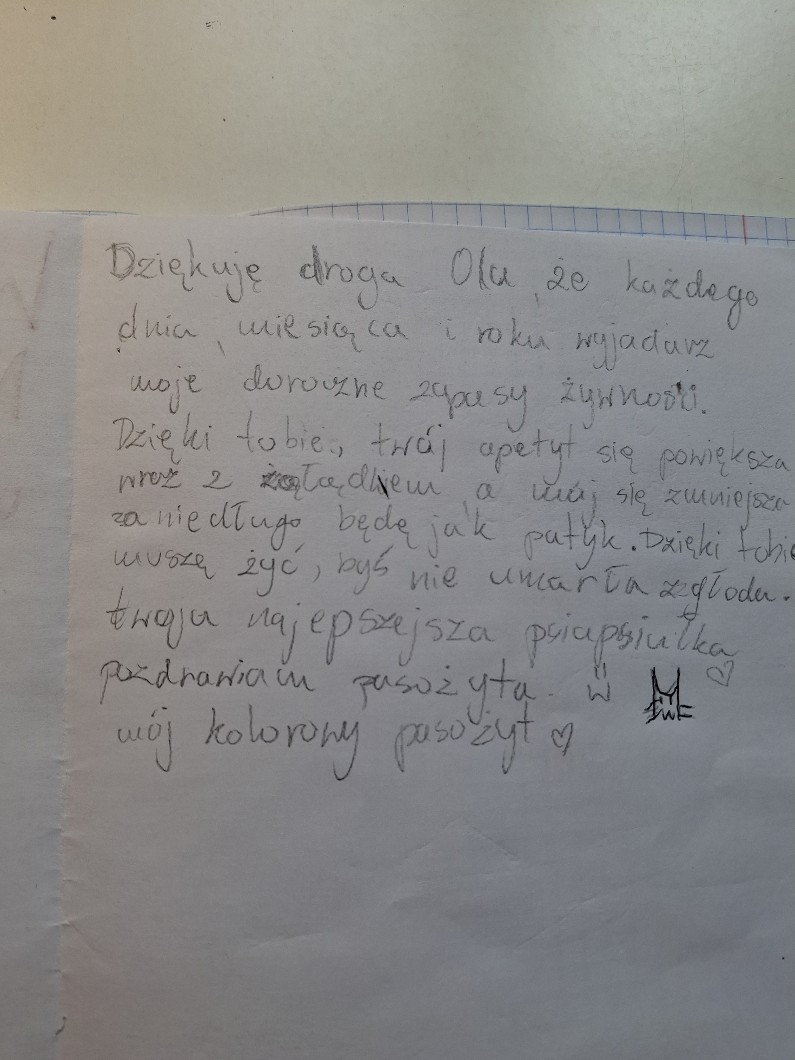 Dziękuję droga Olu, że każdego
dnia, miesiąca i roku wyjadarz
moje doroczne zapasy żywności.
Dzięki tobie, twój apetyt się powiększa
wraz z żołądkiem, a mój się zmniejsza
za niedługo będę jak patyk. Dzięki tobie
muszę żyć, byś nie umarła z głodu.
twoja najepszejsza psiapsiułka ♡
pozdrawiam pasożyta. :3
mój kolorowy pasożyt ♡